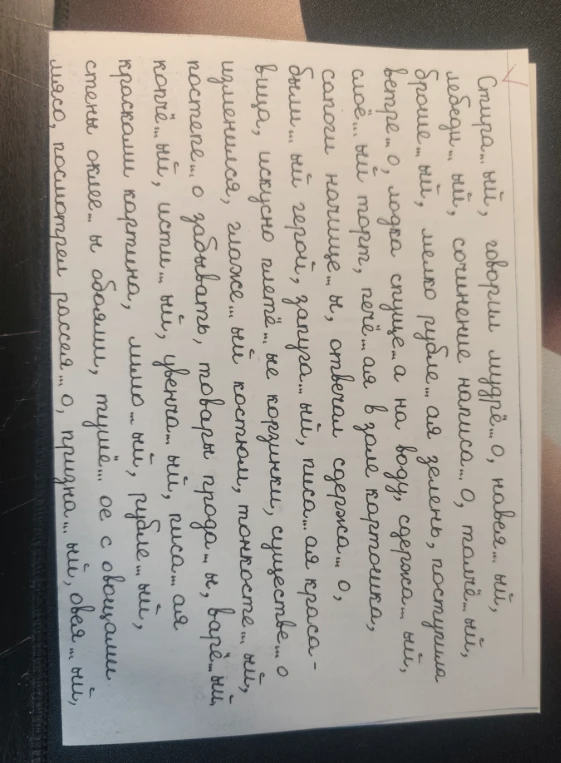 Стира...ый, говорил мудрё...о, навея...ый,
лебеди...ый, сочинение написа...о, толчё...ый,
броше...ый, мелко рубле...ая зелень, поступила
ветре...о, лодка спуще...а на воду, сдержа...ый,
слоё...ый торт, печё...ая в золе картошка,
сапоги начище...ы, отвечал сдержа...о,
были...ый герой, запуга...ый, писа...ая краса-
вица, искусно плетё...ые корзинки, существе...о
изменился, глаже...ый костюм, тонкосте...ый,
постепе...о забывать, товары прода...ы, варё...ый,
копчё...ый, исти...ый, увенча...ый, писа...ая
красками картина, лимо...ый, рубле...ый,
стены оклее...ы обоями, тушё...ое с овощами
мясо, посмотрел рассея...о, призна...ый, овея...ый,